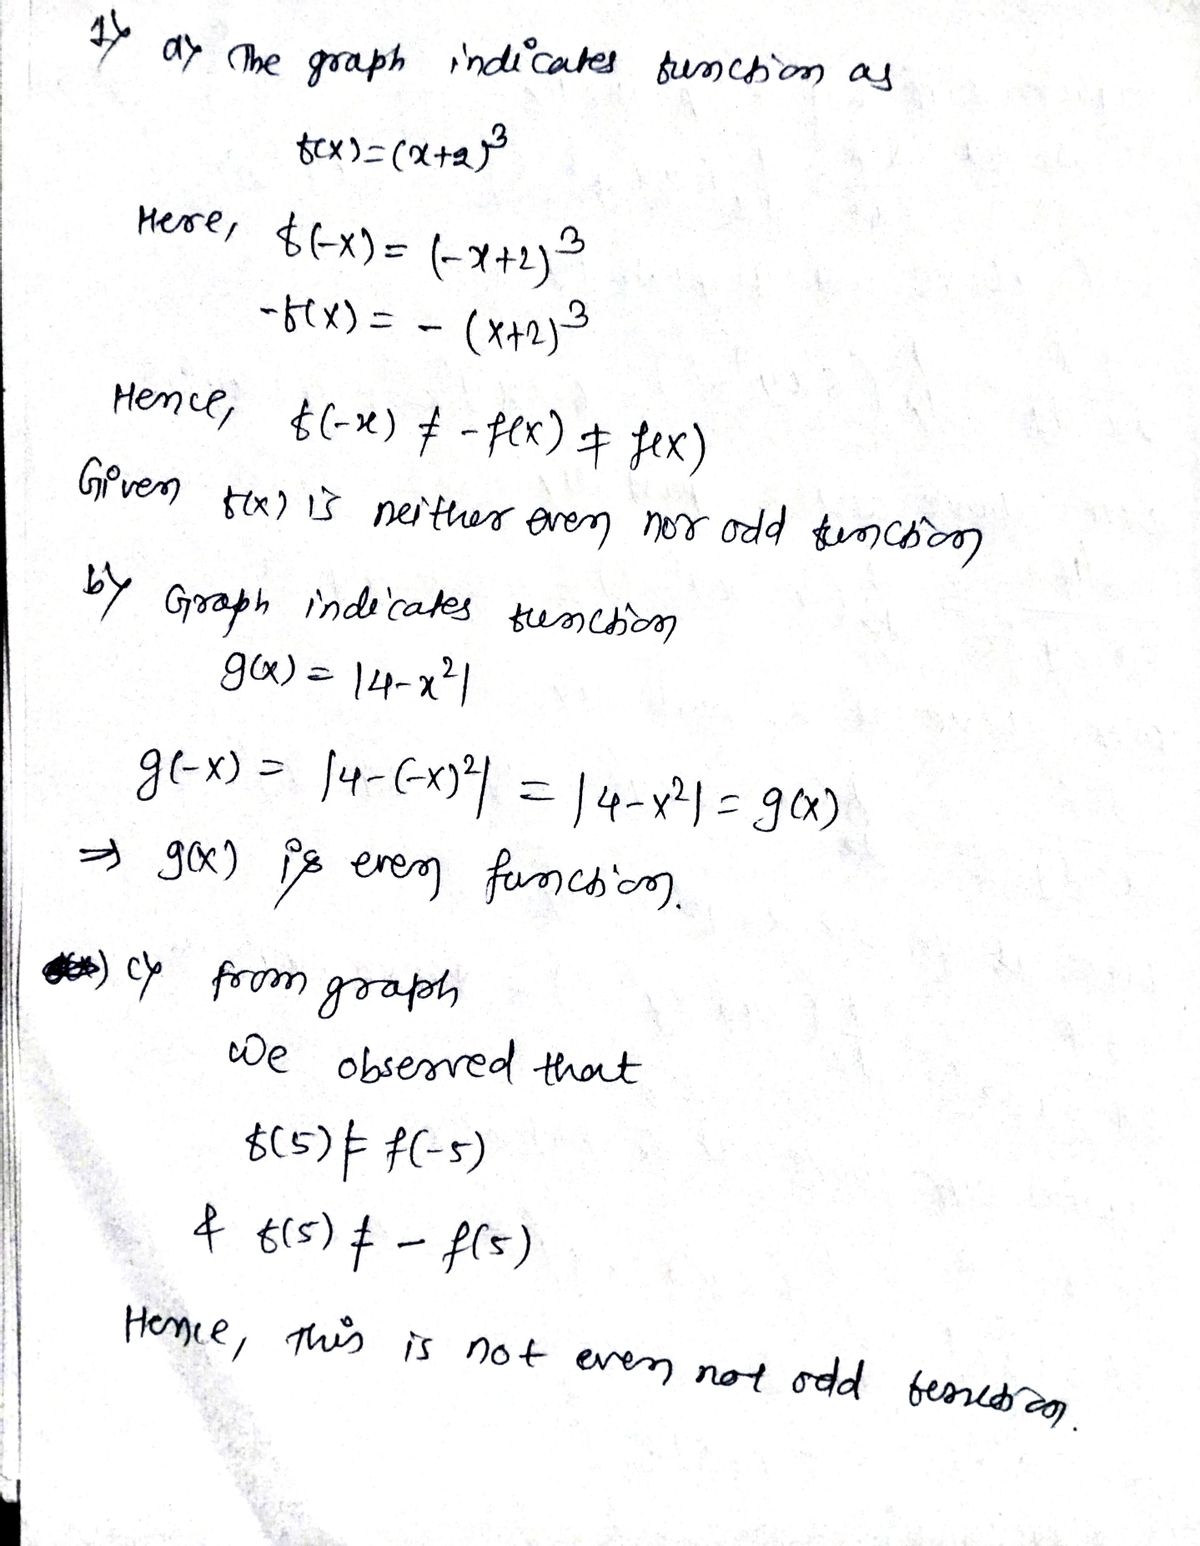 1) a) The graph indicates function as
f(x)=(x+2)³
Here, f(-x) = (-x+2)³
-f(x) = - (x+2)³
Hence, f(-x) ≠ -f(x) ≠ f(x)
Given f(x) is neither even nor odd function
b) Graph indicates function
g(x) = |4-x²|
g(-x) = |4-(-x)²| = |4-x²| = g(x)
⇒ g(x) is even function.
c) from graph
we observed that
f(5) ≠ f(-5)
& f(5) ≠ - f(5)
Hence, This is not even not odd function.